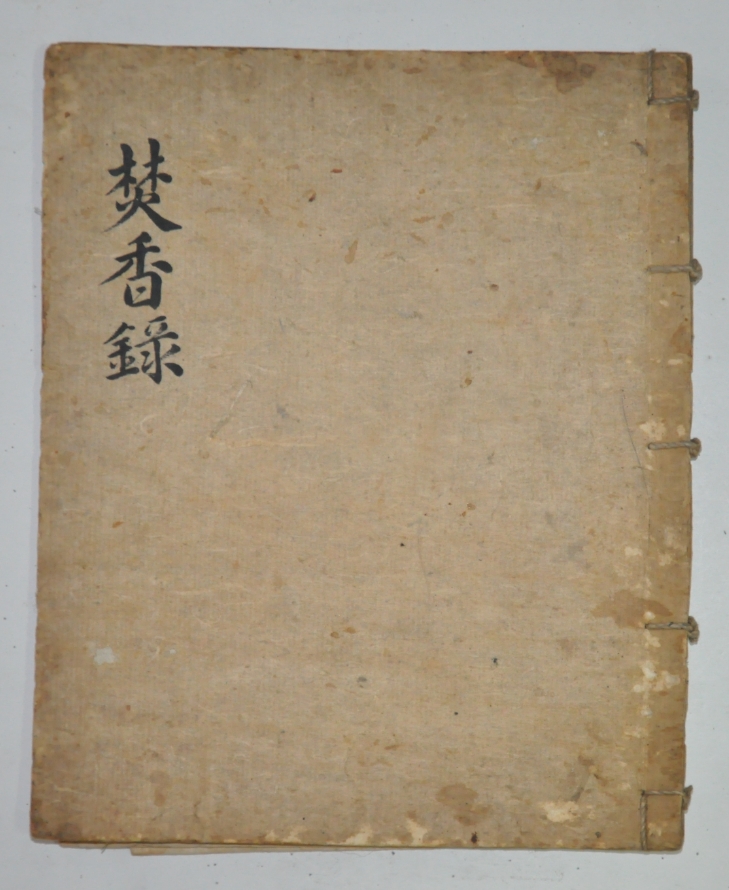 焚香錄